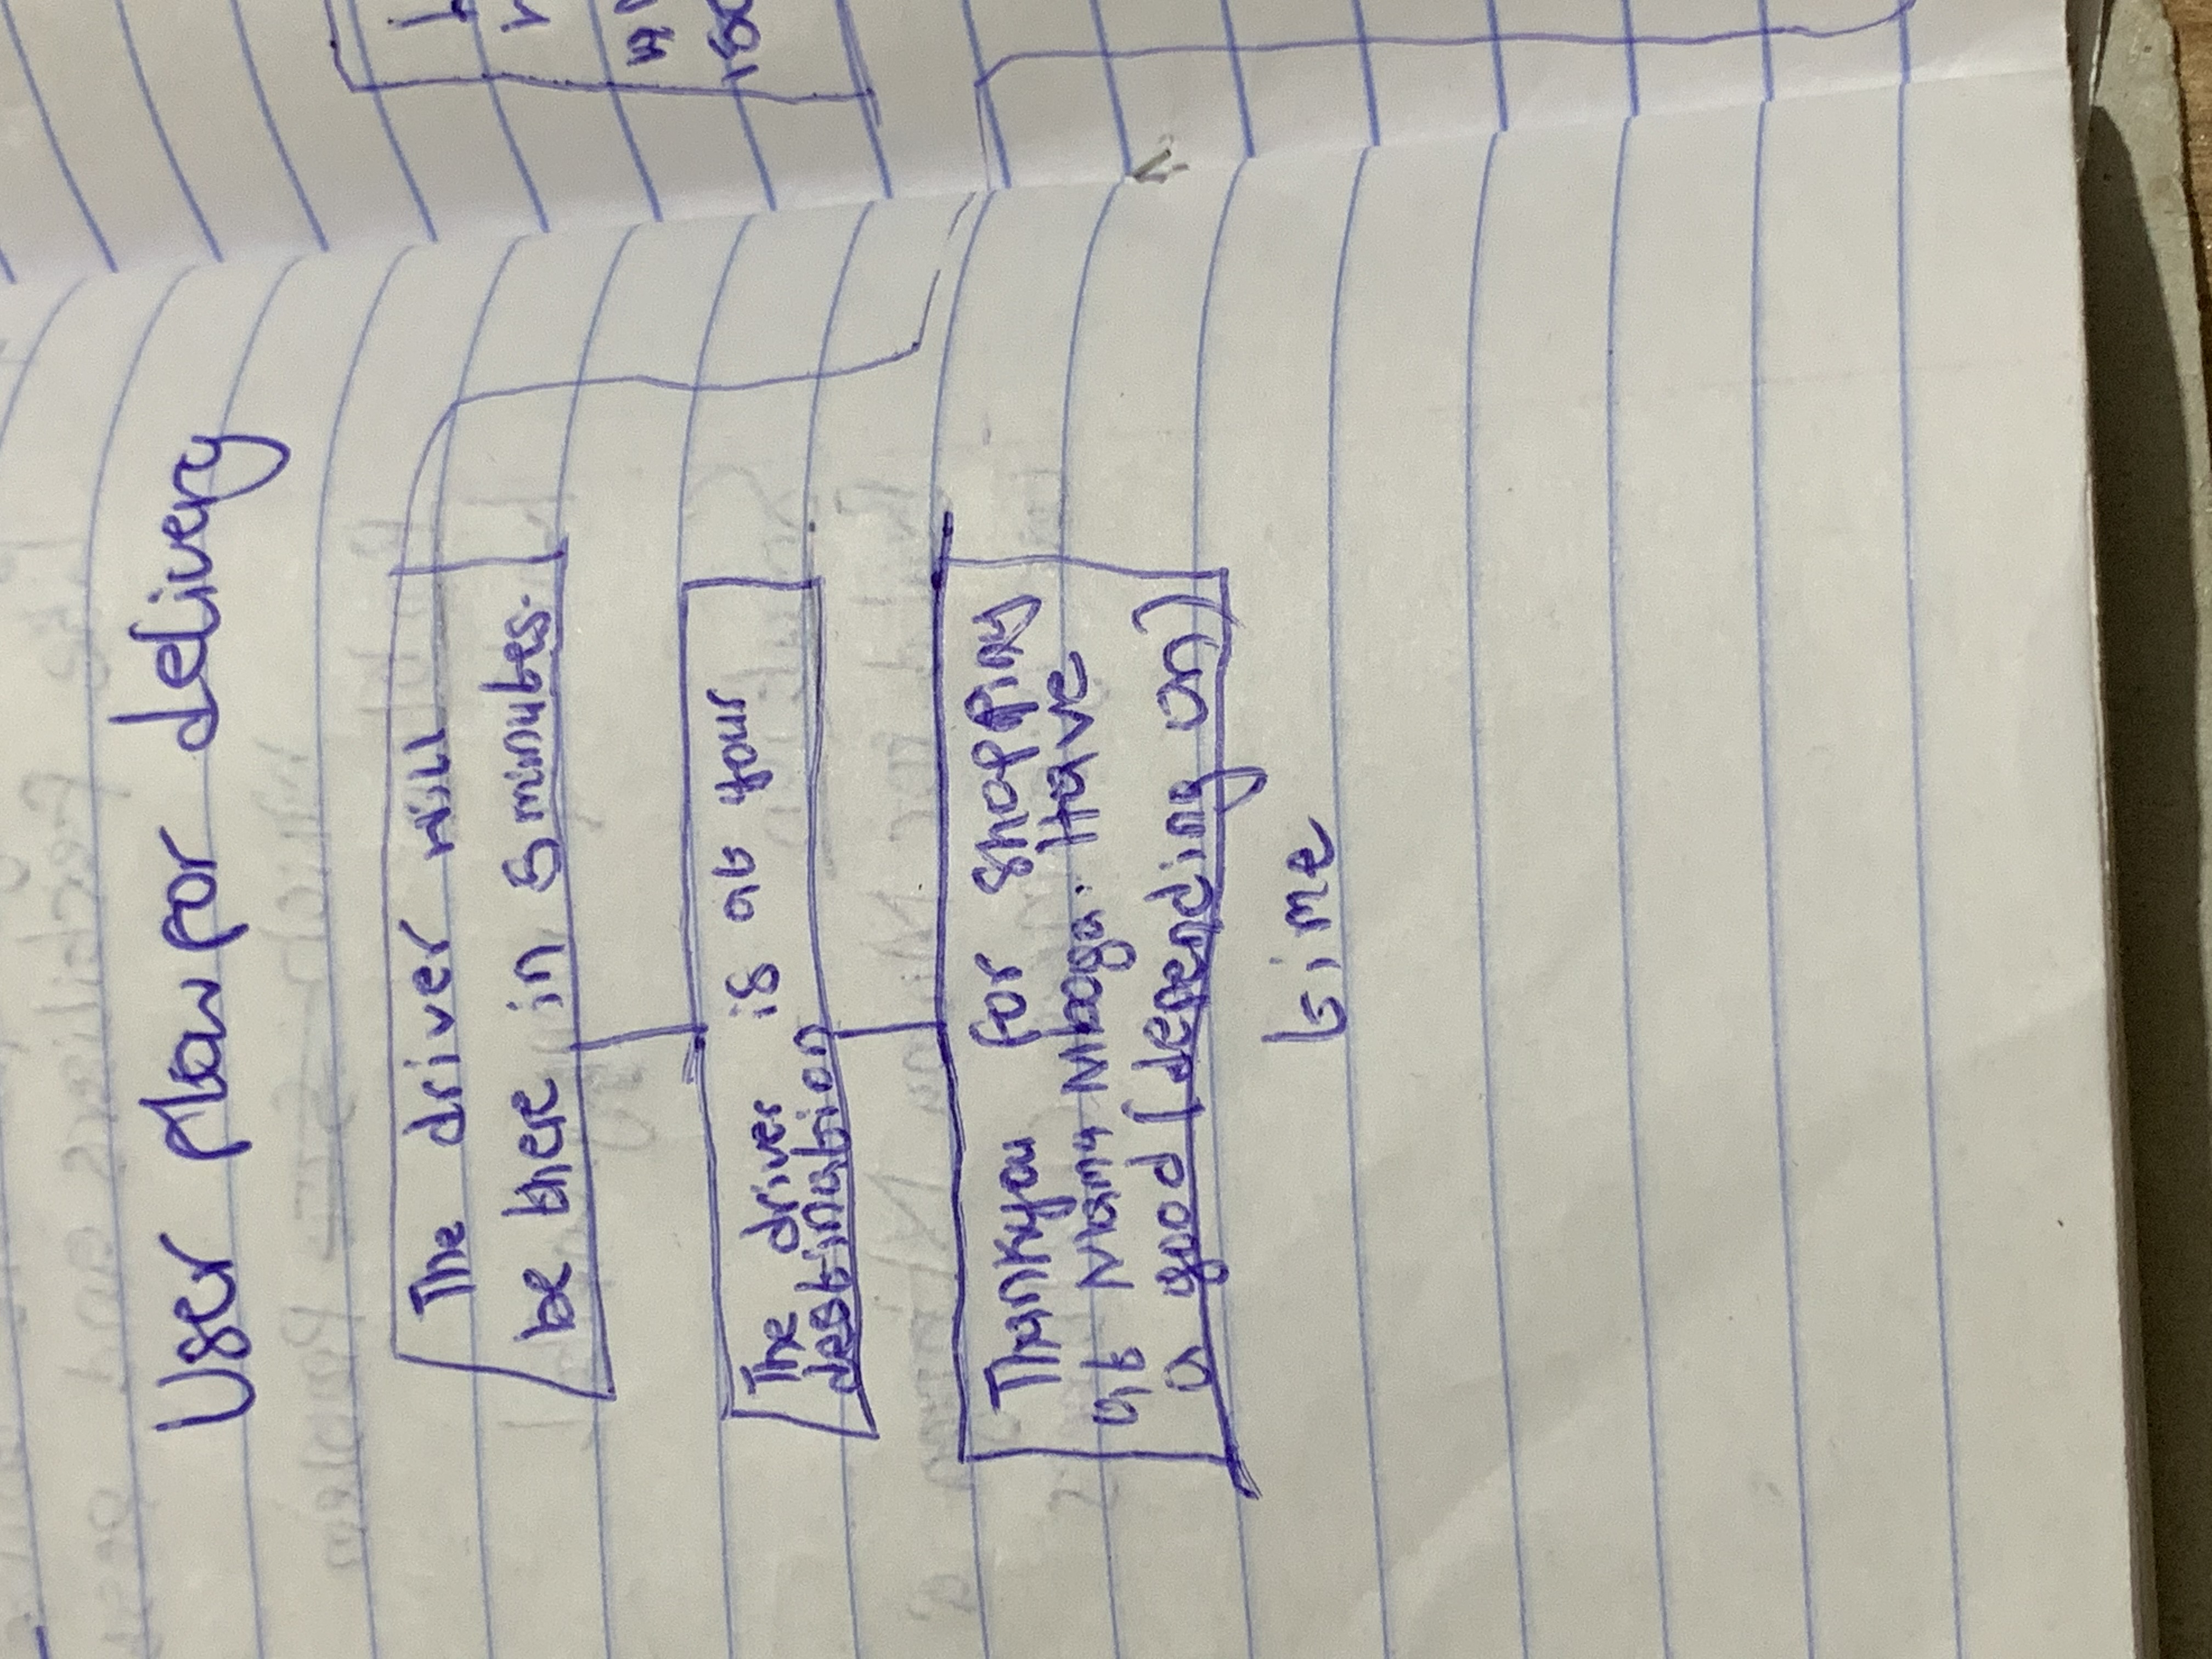 User flow for delivery
The driver will
be there in 5 minutes.
The driver is at your
destination
Thankyou for shopping
at Mama Mboga. Have
a good (depending on)
time